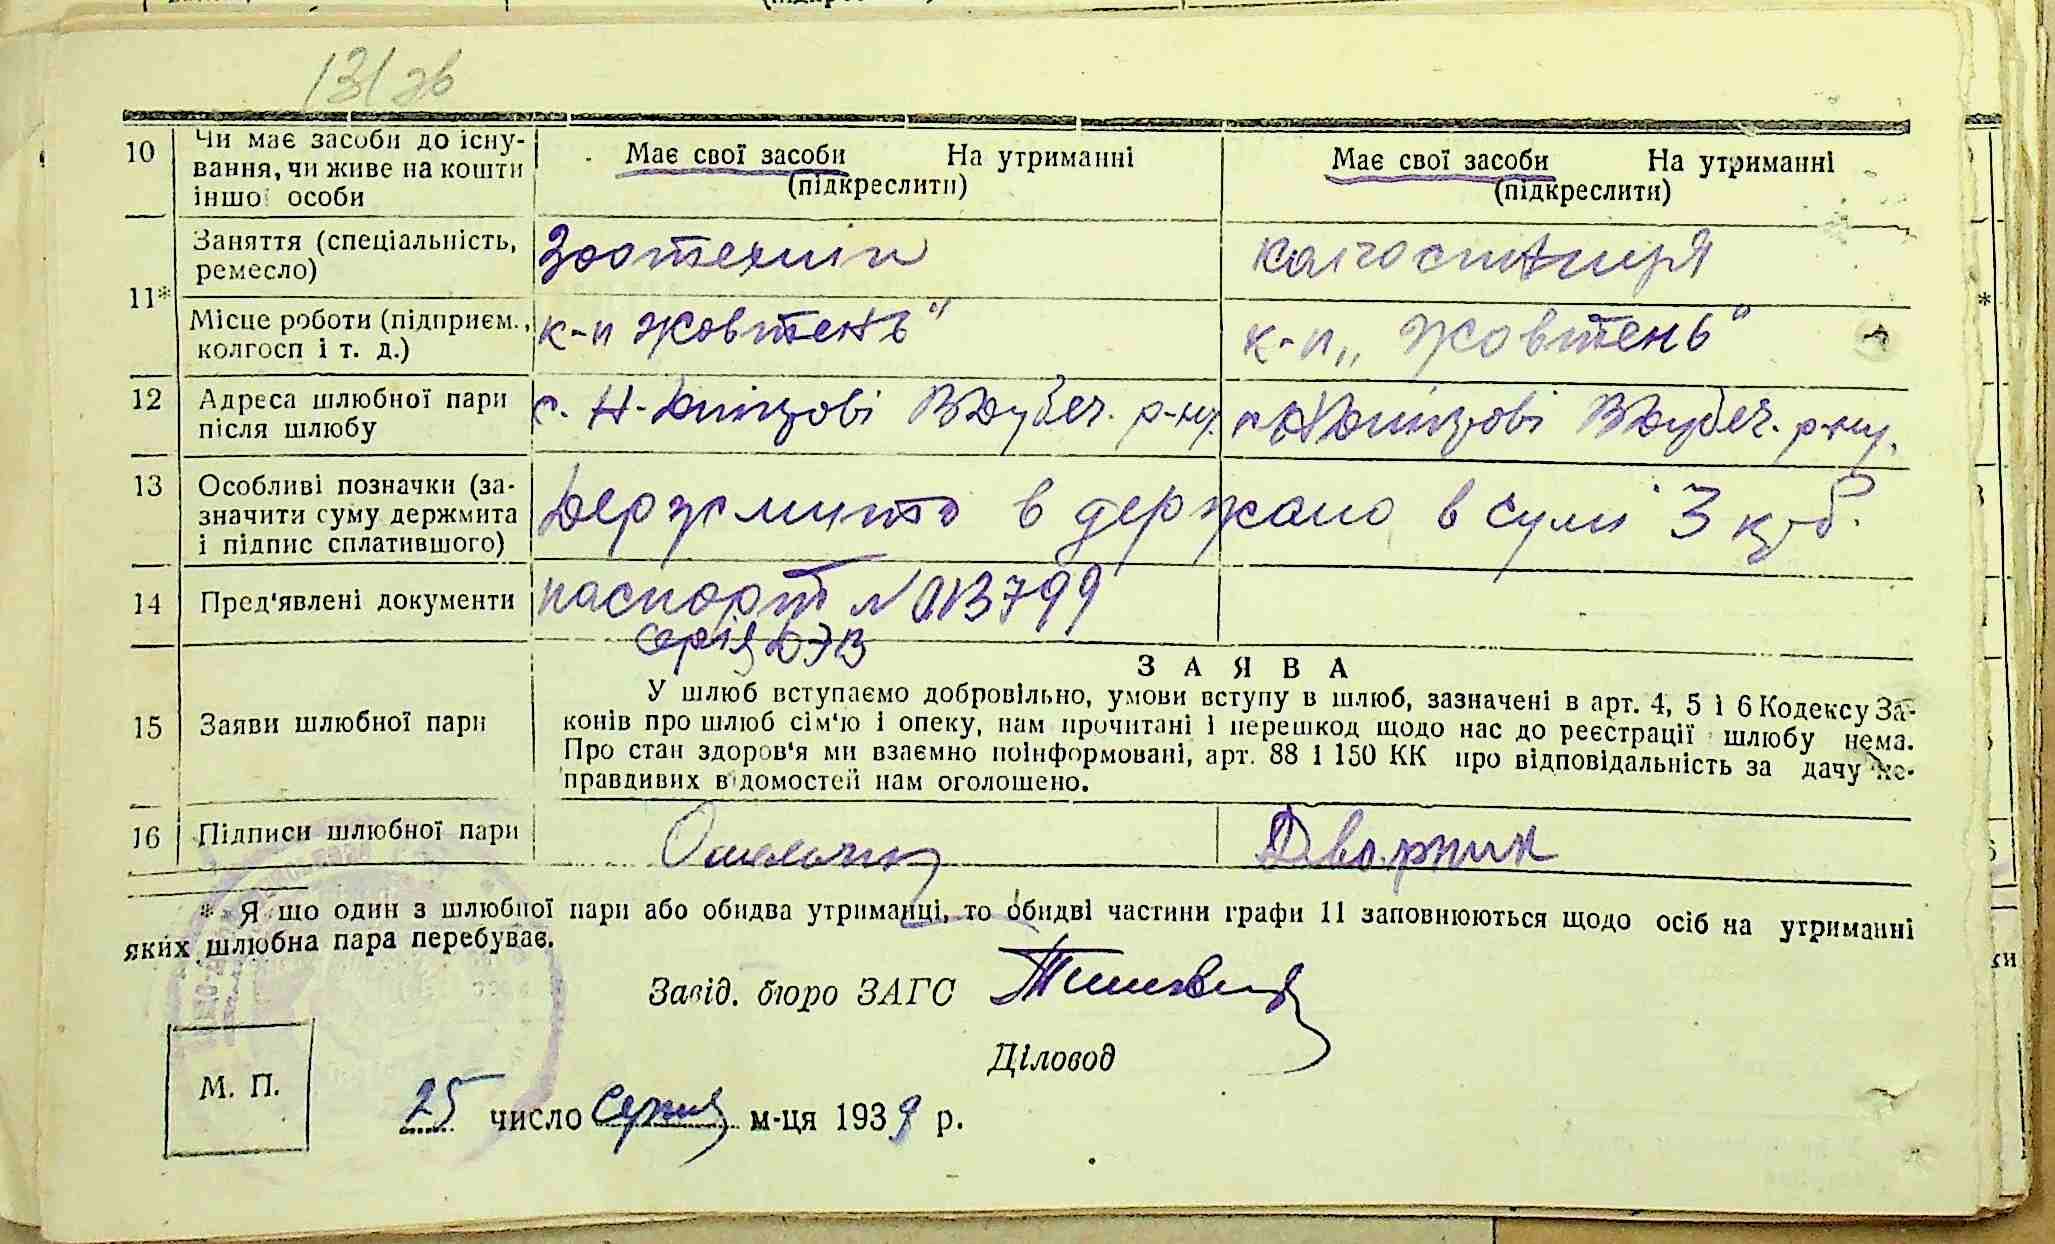 131 зв
10 Чи має засоби до існу-
вання, чи живе на кошти
іншої особи
Має свої засоби На утриманні
(підкреслити)
Має свої засоби На утриманні
(підкреслити)
11* Заняття (спеціальність,
ремесло)
Зоотехнік
колгоспниця
Місце роботи (підприєм.,
колгосп і т. д.)
к-п Жовтень"
к-п „Жовтень"
12 Адреса шлюбної пари
після шлюбу
с. Н- ВДубеч. р-ну.
ВДубеч. р-ну.
13 Особливі позначки (за-
значити суму держмита
і підпис сплатившого)
Держмито в держано в сумі 3 крб.
14 Пред'явлені документи
паспорт № 013799
серія ДЭВ
15 Заяви шлюбної пари
ЗАЯВА
У шлюб вступаємо добровільно, умови вступу в шлюб, зазначені в арт. 4, 5 і 6 Кодексу За-
конів про шлюб сім'ю і опеку, нам прочитані і перешкод щодо нас до реєстрації шлюбу нема.
Про стан здоров'я ми взаємно поінформовані, арт. 88 і 150 КК про відповідальність за дачу не-
правдивих відомостей нам оголошено.
16 Підписи шлюбної пари
Дворник
* Якщо один з шлюбної пари або обидва утриманці, то обидві частини графи 11 заповнюються щодо осіб на утриманні
яких шлюбна пара перебуває.
Завід. бюро ЗАГС
Діловод
М. П.
25 число Серпня м-ця 1939 р.